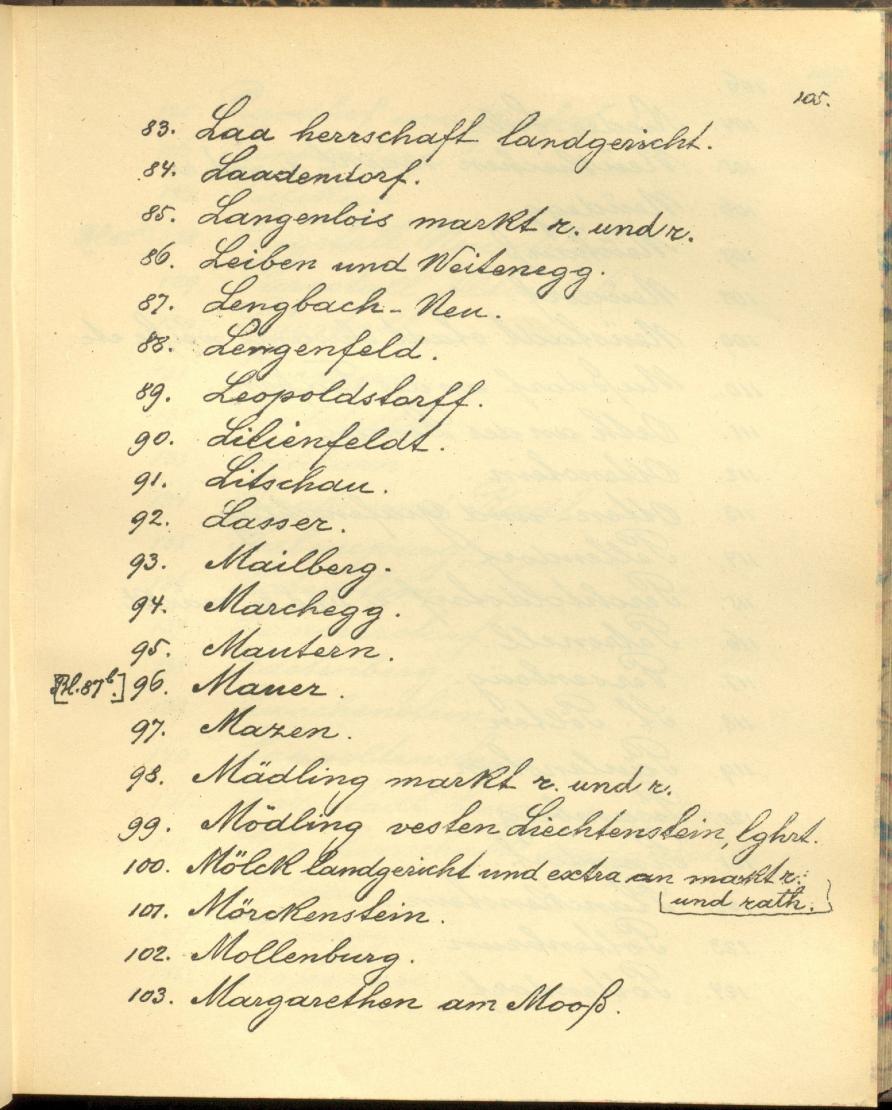 105.
83. Laa herrschaft landgericht.
84. Laadendorf.
85. Langenlois markt r. und r.
86. Leiben und Weitenegg.
87. Lengbach-Neu.
88. Lengenfeld.
89. Leopoldstorff.
90. Lilienfeldt.
91. Litschau.
92. Lasser.
93. Mailberg.
94. Marchegg.
95. Mautern.
[Bl. 87b.] 96. Mauer.
97. Mazen.
98. Mädling markt r. und r.
99. Mödling vesten Liechtenstein, lghrt.
100. Mölck landgericht und extra an markt r.
und rath.
101. Mörckenstein.
102. Mollenburg.
103. Margarethen am Mooß.